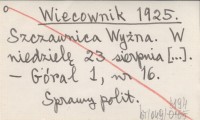 Wiecownik 1925.
Szczawnica Wyżna. W
niedzielę 23 sierpnia [...].
– Góral 1, nr 16.
Sprawy polit.